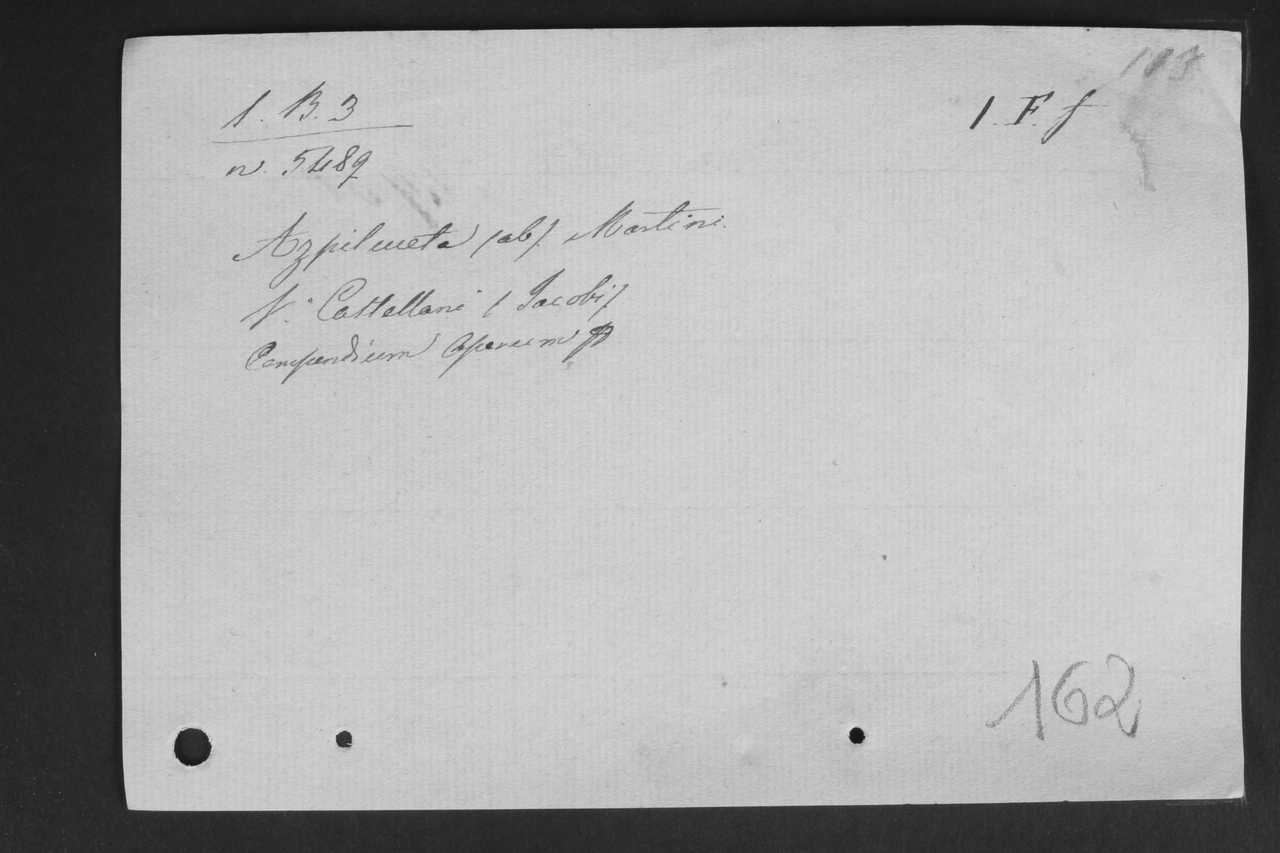 1. B. 3
1. F. f
n. 5489
Azpilcueta (ab). Martini.
V. Castellani (Jacobi)
Compendium Operum
162